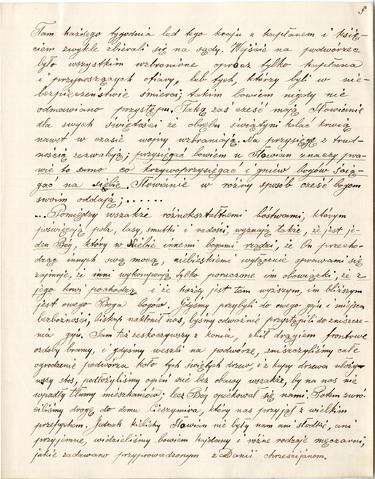 8
Tam każdego tygodnia lud tego kraju z kapłanem i księ-
ciem zwykle zbierali się na sądy. Wejście na podwórzec
było wszystkim wzbronione oprócz tylko kapłana
i przynoszących ofiary, lub tych, którzy byli w nie-
bezpieczeństwie śmierci; takim bowiem nigdy nie
odmawiano przystępu. Taką zaś cześć mają Słowianie
dla swych świętości że obrębu świątyni kalać krwią
nawet w czasie wojny wzbraniają. Na przysięgę z trud-
nością zezwalają; przysięgać bowiem u Słowian znaczy pra-
wie to samo co krzywoprzysięgać i gniew bogów ścią-
gać na siebie Słowianie w różny sposób cześć bogom
swoim oddają; ......
... Pomiędzy wszakże różnokształtnemi bóstwami, którym
poświęcają pola, lasy, smutki i radości wyznają także, że jest je-
den Bóg, który w Niebie innemi bogami rządzi, że On przecho-
dząc innych swą mocą, niebieskiemi wyłącznie sprawami się
zajmuje, że inni wykonywają tylko poruczone im obowiązki, że z
jego krwi pochodzą i że każdy jest tem wyższym, im bliższym
jest owego Boga bogów. Gdyśmy przybyli do owego gaju i miejsca
bezbożności, biskup nakłonił nas, byśmy odważnie przystąpili do zniszcze-
nia gaju. Sam też zeskoczywszy z konia, zbił drągiem frontowe
ozdoby bramy, i gdyśmy weszli na podwórze, zniszczyliśmy całe
ogrodzenie podwórza koło tych świętych drzew, i z kupy drzewa ułożyw-
szy stos, podłożyliśmy ogień acz bez obawy wszakże, by na nas nie
wpadły tłumy mieszkańców; lecz Bóg opiekował się nami. Potem zwró-
ciliśmy drogę do domu Cieszymira, który nas przyjął z wielkim
przepychem. Jednak kielichy Słowian nie były nam ani słodkie, ani
przyjemne, widzieliśmy bowiem kajdany i różne rodzaje męczarni
jakie zadawano przyprowadzonym z Danii chrześcijanom.